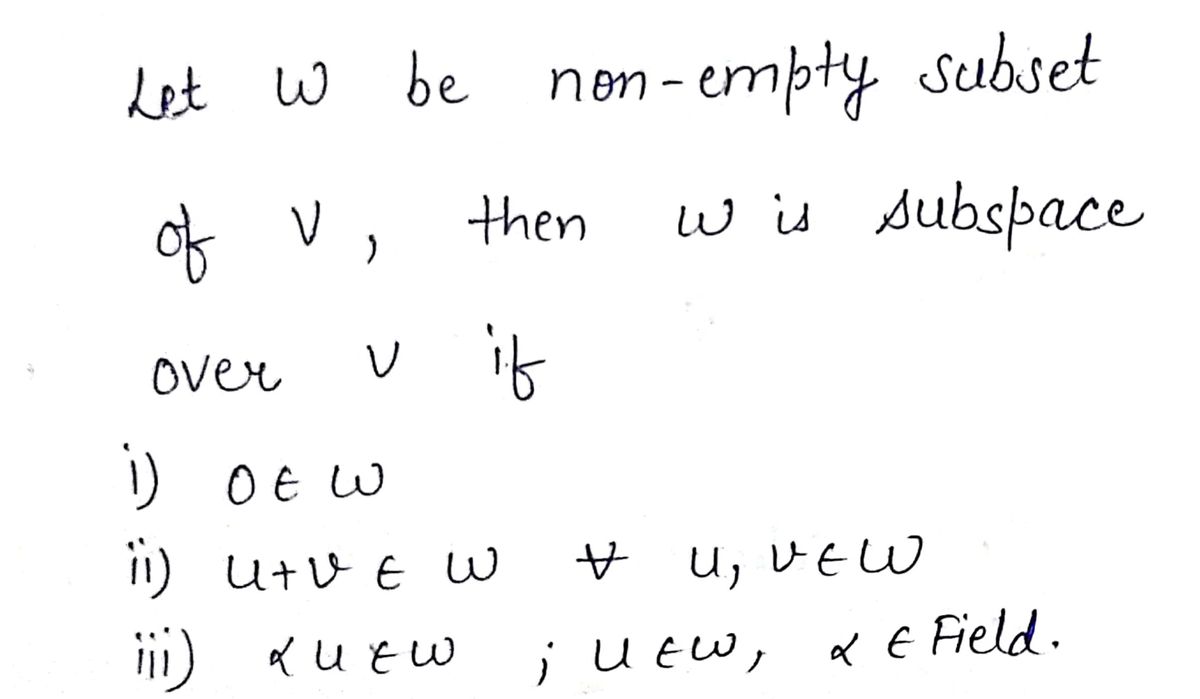 Let W be non-empty subset
of V, then W is subspace
over V if
i) 0 ∈ W
ii) u+v ∈ W ∀ u, v ∈ W
iii) αu ∈ W ; u ∈ W, α ∈ Field.